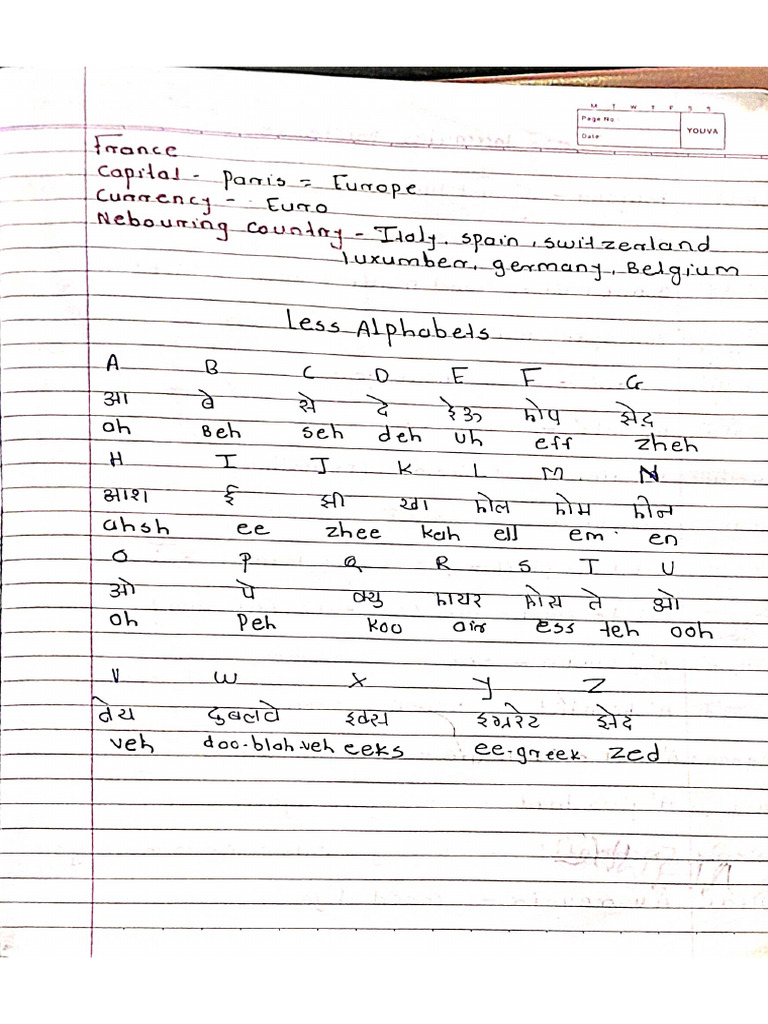 M T W T F S S
Page No.
Date
YOUVA
France
Capital - Parris = Europe
Currency - Euro
Nebouring Country - Italy, spain, switzerland
luxumber, germany, Belgium
Less Alphabets
A B C D E F G
आ बे से दे ईऊ झेद
ah Beh seh deh uh eff zheh
H I J K L M N
आश ई झी खा
ahsh ee zhee kah ell em en
O P Q R S T U
ओ पे क्यु ते ओ
oh Peh koo air ess teh ooh
V W X Y Z
वेय दुबलवे इक्स इग्ररेट झेद
veh doo-blah-veh eeks ee-greek zed